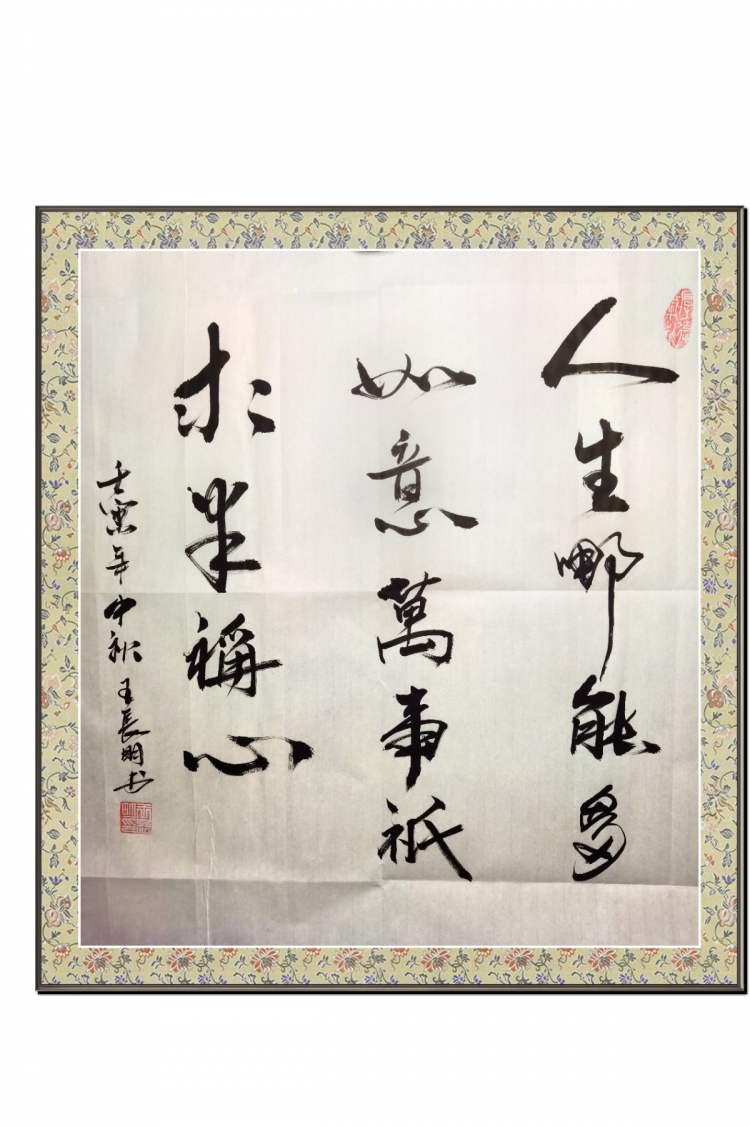 人生哪能多
如意萬事祇
求半稱心
壬寅年中秋王長明书